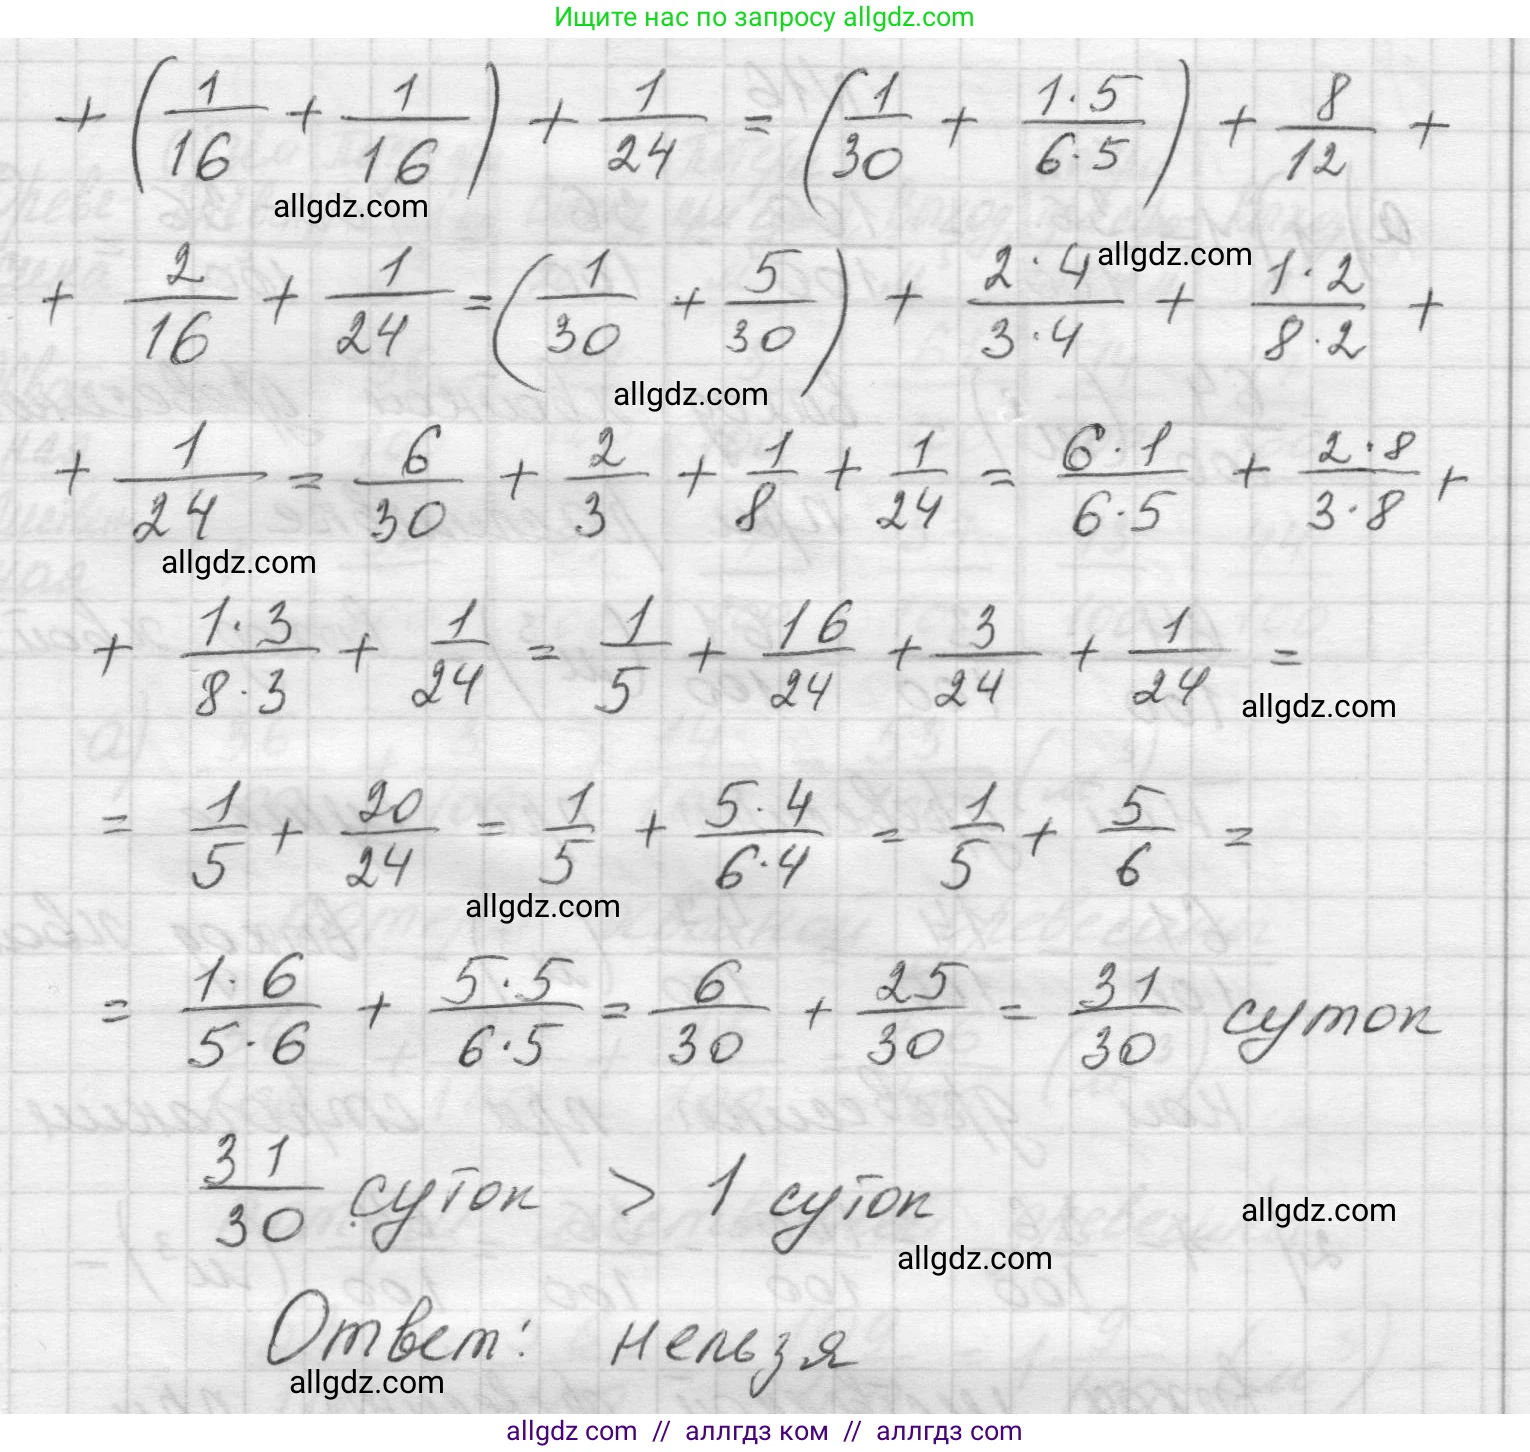 Ищите нас по запросу allgdz.com
+ (1/16 + 1/16) + 1/24 = (1/30 + 1·5/6·5) + 8/12 +
allgdz.com
allgdz.com
+ 2/16 + 1/24 = (1/30 + 5/30) + 2·4/3·4 + 1·2/8·2 +
allgdz.com
+ 1/24 = 6/30 + 2/3 + 1/8 + 1/24 = 6·1/6·5 + 2·8/3·8 +
allgdz.com
+ 1·3/8·3 + 1/24 = 1/5 + 16/24 + 3/24 + 1/24 =
allgdz.com
= 1/5 + 20/24 = 1/5 + 5·4/6·4 = 1/5 + 5/6 =
allgdz.com
= 1·6/5·6 + 5·5/6·5 = 6/30 + 25/30 = 31/30 суток
31/30 суток > 1 суток
allgdz.com
allgdz.com
Ответ: нельзя
allgdz.com
allgdz com // аллгдз ком // аллгдз com